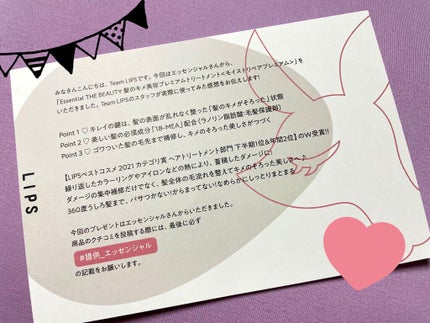 みなさんこんにちは、Team LIPSです。今回はエッセンシャルさんから、
「Essential THE BEAUTY 髪のキメ美容プレミアムトリートメント<モイストリペアプレミアム>」を
いただきました。Team LIPSのスタッフが実際に使ってみた感想をお伝えします!
Point 1 ♡ キレイの鍵は、髪の表面が乱れなく整った「髪のキメがそろった」状態
Point 2 ♡ 美しい髪の必須成分「18-MEA」配合(ラノリン脂肪酸:毛髪保護剤)
Point 3 ♡ ゴワついた髪の毛先まで補修し、キメのそろった美しさがつづく
【LIPSベストコスメ 2021 カテゴリ賞 ヘアトリートメント部門 下半期1位&年間2位】のW受賞!!
繰り返したカラーリングやアイロンなどの熱により、蓄積したダメージに!
ダメージの集中補修だけでなく、髪全体の毛流れを整えてキメのそろった美しさへ♪
360度うしろ髪まで、パサつかない!からまってない!なめらかにしっとりまとまる
今回のプレゼントはエッセンシャルさんからいただきました。
商品のクチコミを投稿する際には、最後に必ず
#提供_エッセンシャル
の記載をお願いします。
LIPS